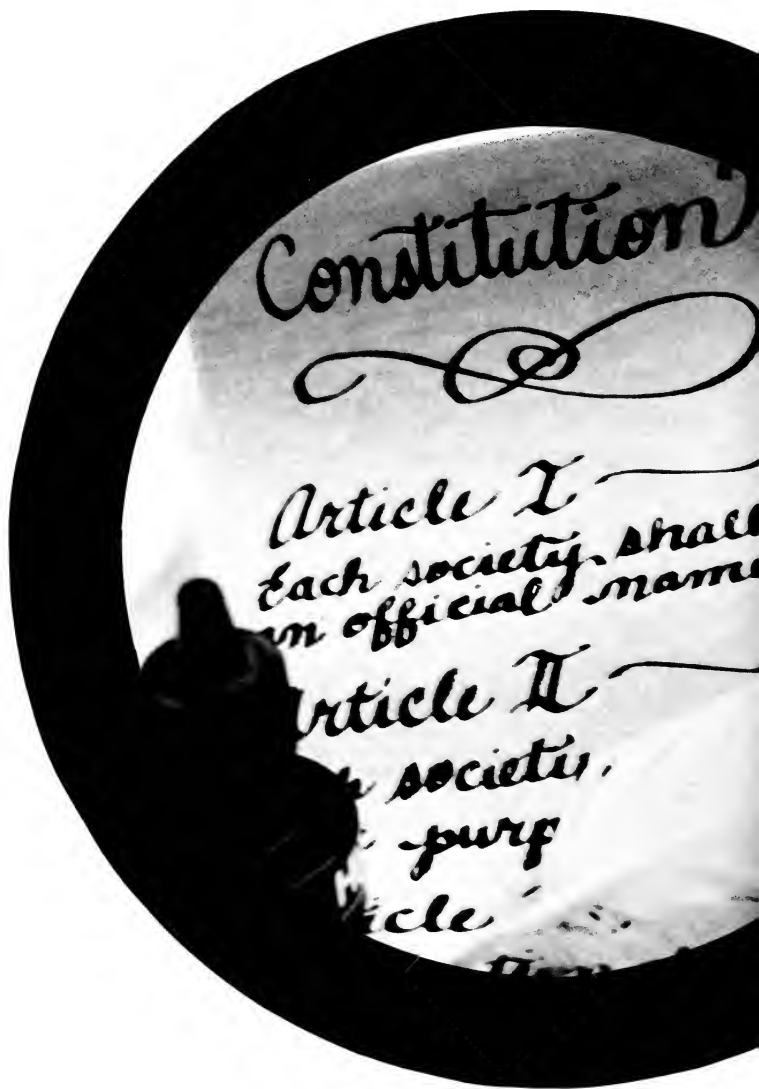 Constitution
Article I
Each society shall
an official name
Article II
society
purp
icle